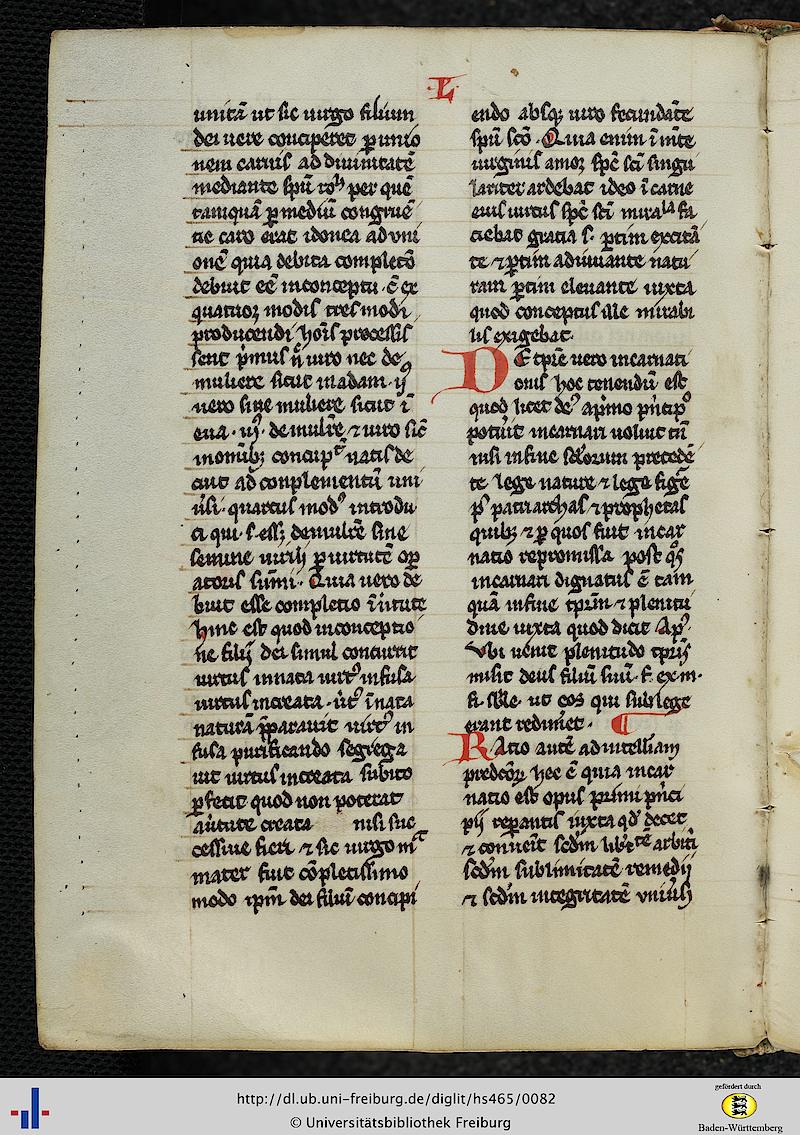 L
unitā ut sic uirgo filium
dei uere conciperet ꝑ unio
nem carnis ad diuinitatē
mediante spū per quē
tamquā ꝑ mediū congruē
tie caro erat idonea ad vni
onē quia debita completō
debuit eē in conceptu · C̄ ex
quatuor modis tres modi
producendi hoīs processis
sent pͥmus nec de
muliere sicut in adam · ij
uero sine muliere sicut ī
eua · iijꝰ · de mulīre ⁊ uiro sic̄
in omībꝫ natis de
cuit ad conplementū uni
ūsi · quartus modꝰ introdu
ci qui · s · de mulīre sine
semine uirili ꝑ uirtutē oꝑ
atoris sūmi · Quia uero de
buit esse completio ī uirtute
hinc est quod in conceptio
ne filij dei simul concurrit
uirtus innata uirtꝰ infusa
uirtus increata · īnata
naturā p̄parauit uirtꝰ in
fusa purificando segrega
uit uirtus increata subito
ꝑfecit quod non poterat
a uirtute creata nisi suc
cessiue fieri ⁊ sic uirgo
mater fuit cōpletissimo
modo ipm̄ dei filiū concipi
endo absqꝫ uiro fecundāte
spū scō · Quia enim ī mēte
uirginis amor spc̄ sc̄i singu
lariter ardebat ideo ī carne
eius uirtus spc̄ sc̄i fa
ciebat gratia s · ꝑtim excitā
te ⁊ ꝑtim adiuuante natu
ram ꝑtim eleuante iuxta
quod conceptus ille mirabi
lis exigebat ·
De uero incarnati
onis hoc tenendū est
quod licet deꝰ a pͥmo pͥncipꝰ
potuit incarnari uoluit tn̄
nisi in fine precedē
te lege nature ⁊ lege figē
pꝰ patriarchas ⁊ prophetas
quibꝫ ⁊ ꝑ quos fuit incar
natio repromissa post qͦs
incarnari dignatus ē tam
quā in fine ⁊ plenitu
dine iuxta quod dicit Apꝰ ·
Vbi uenit plenitudo tpris
misit deus filiū suū · f · ex · m ·
f · ut eos qui sub lege
erant redimet · ¶
Ratio autē ad intelliām
hec ē quia incar
natio est opus primi pͥnci
pij reparantis iuxta qd̓ decet
⁊ conuenit scd̄m arbitͥ
scd̄m sublimitatē remedij
⁊ scd̄m integritatē
http://dl.ub.uni-freiburg.de/diglit/hs465/0082
© Universitätsbibliothek Freiburg
gefördert durch
Baden-Württemberg